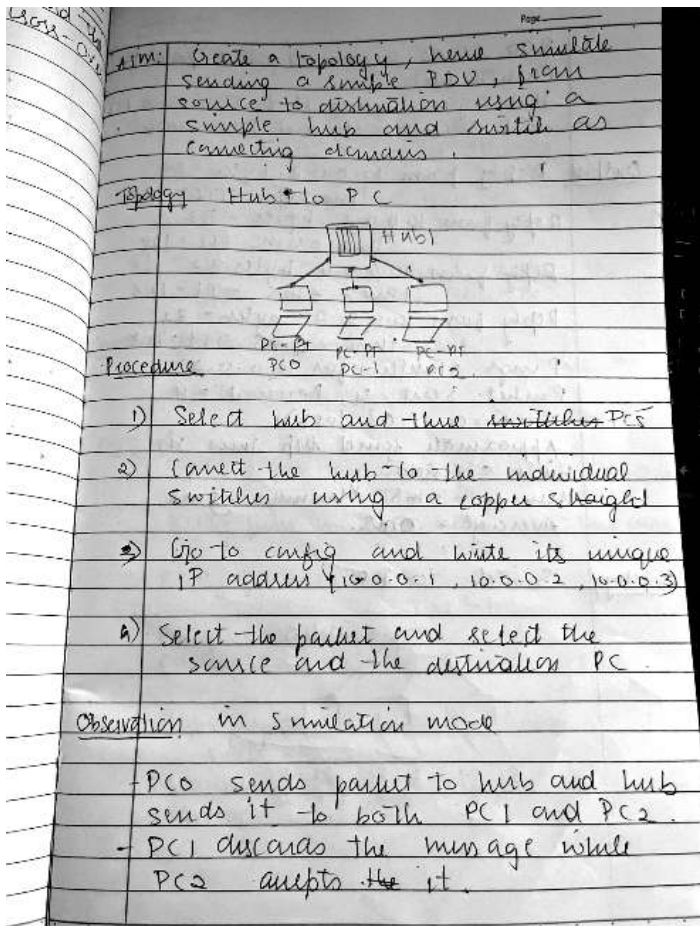 Page
Cross-Ove
Aim: Create a topology, hence simulate
sending a simple PDU, from
source to distination using a
simple hub and switch as
connecting domains.
Topology Hub to PC
Hub1
PC-PT PC-PT PC-PT
PC0 PC-1 PC2
Procedure
1) Select hub and three switches PCs
2) Connect the hub to the individual
switches using a copper straight
3) Go to config and write its unique
IP address (10.0.0.1, 10.0.0.2, 10.0.0.3)
4) Select the packet and select the
source and the destination PC.
Observation in simulation mode
- PC0 sends packet to hub and hub
sends it to both PC1 and PC2.
- PC1 discards the message while
PC2 accepts the it.